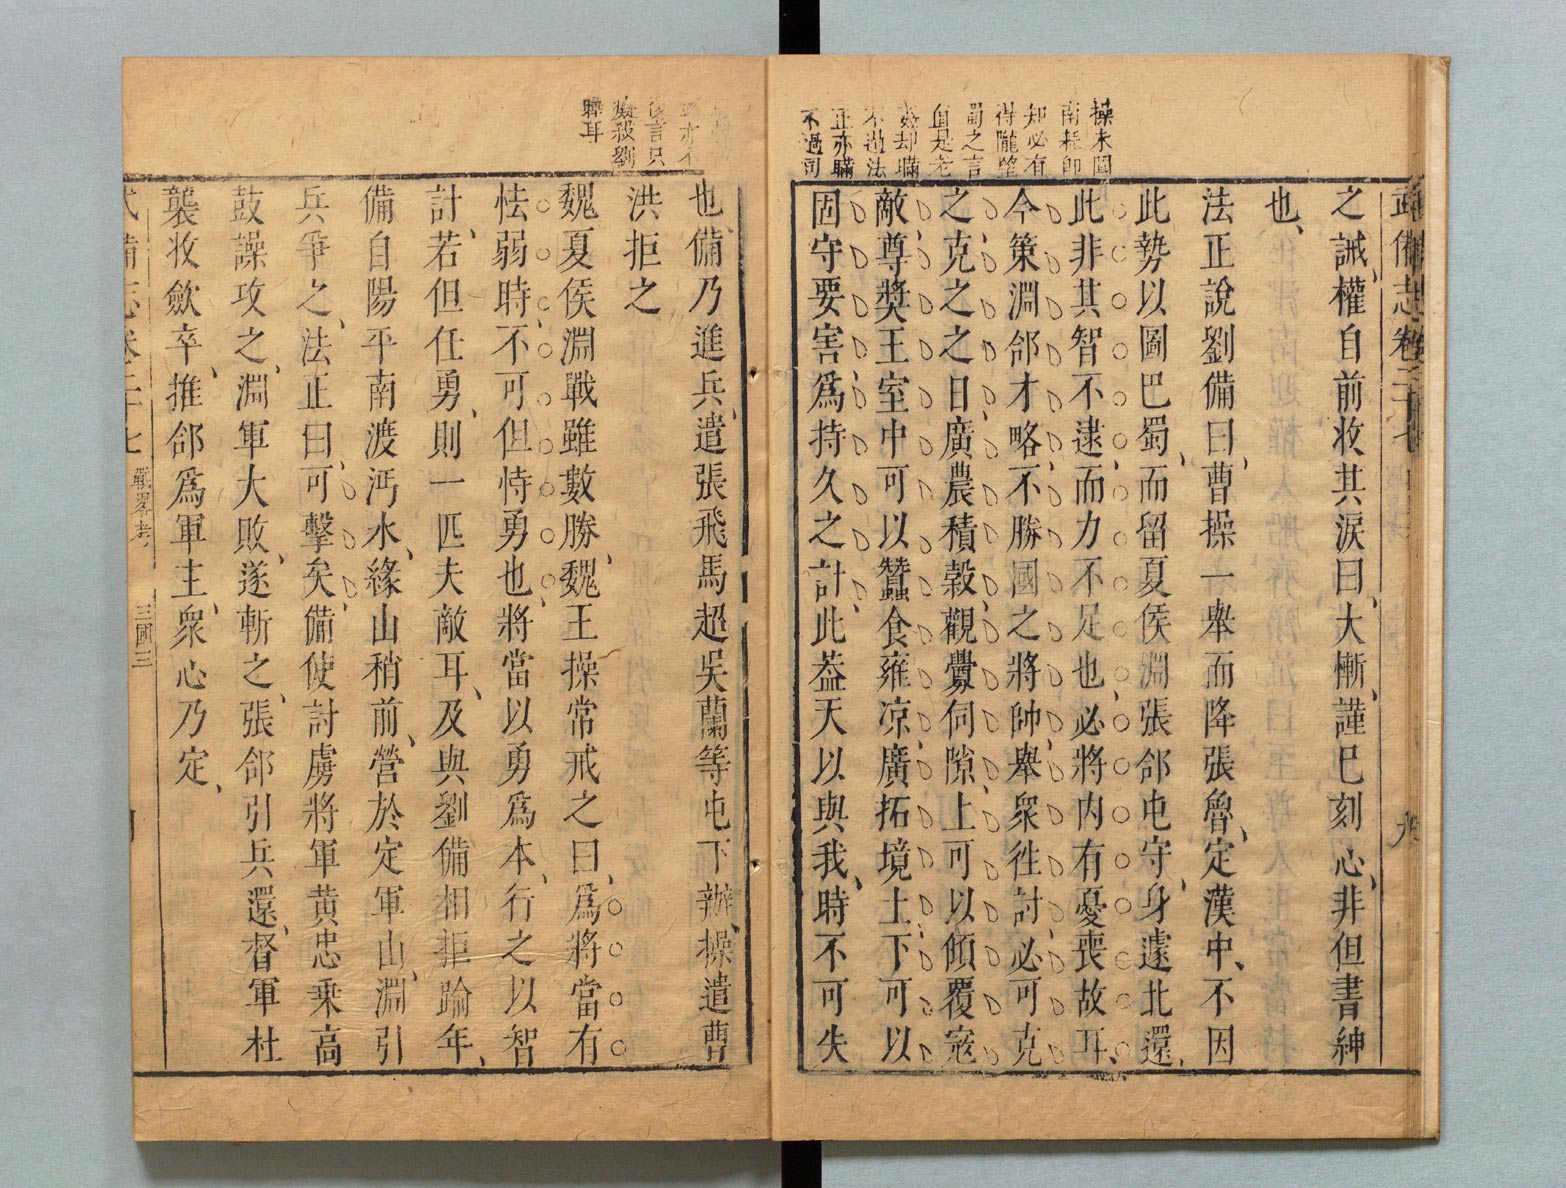 武備志卷二十七
九
之誡、權自前收其淚曰、大慚、謹已刻心、非但書紳
也、
法正說劉備曰、曹操一舉而降張魯、定漢中、不因
此勢以圖巴蜀、而留夏侯淵張郃屯守、身遽北還、
此非其智不逮、而力不足也、必將内有憂喪故耳、
今策淵郃才略、不勝國之將帥、舉衆徃討、必可克
之、克之之日、廣農積穀、觀釁伺隙、上可以傾覆寇
敵、尊奬王室、中可以蠶食雍凉、廣拓境土、下可以
固守要害、爲持久之計、此葢天以與我、時不可失
操未聞
南耗卽
知必有
得隴望
蜀之言
自是老
姦却瞞
不過法
正亦瞞
不過司
也、備乃進兵、遣張飛馬超吳蘭等屯下辦、操遣曹
洪拒之
魏夏侯淵戰雖數勝、魏王操常戒之曰、爲將當有
怯弱時、不可但恃勇也、將當以勇爲本、行之以智
計、若但任勇、則一匹夫敵耳、及與劉備相拒踰年、
備自陽平南渡沔水、緣山稍前、營於定軍山、淵引
兵爭之、法正曰、可擊矣、備使討虜將軍黄忠乗高
鼓譟攻之、淵軍大敗、遂斬之、張郃引兵還、督軍杜
襲收斂卒、推郃爲軍主、衆心乃定、
亦不
後言只
癡殺劉
曄耳
武備志卷二十七
戰畧考
三國三